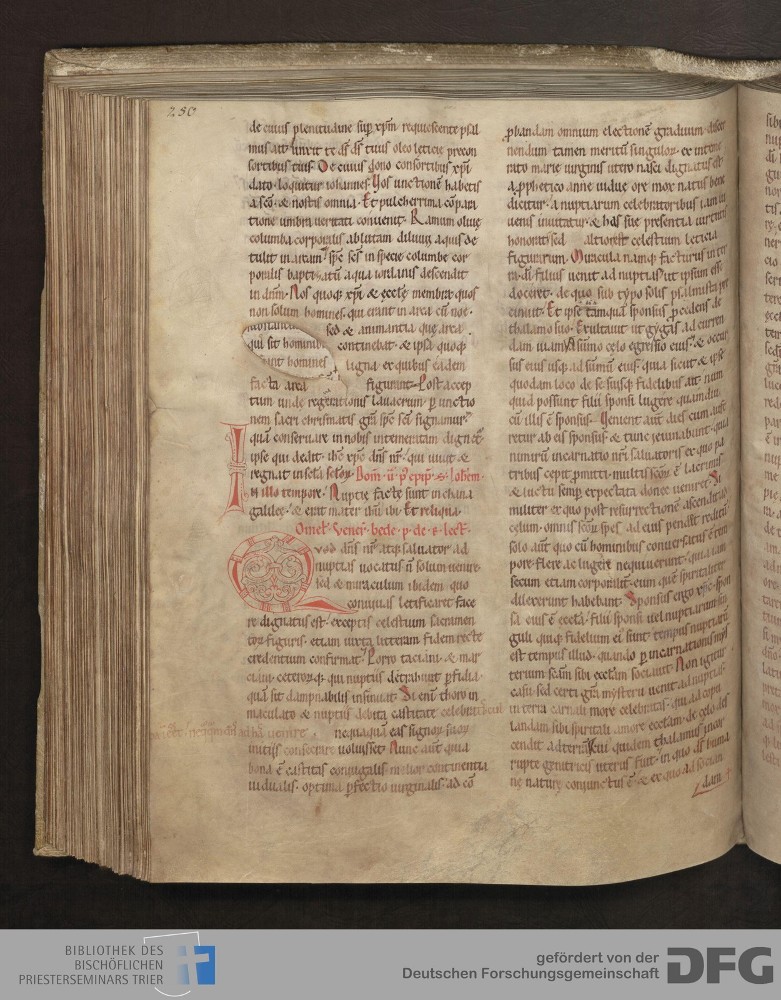 230
de cuius plenitudine sup xpm requiescente psal
mus ait. unxit te ds ds tuus oleo leticie precon
sortibus tuis. De cuius dono consortibus xpi
dato loquitur iohannes. Vos unctionē habetis
a scō. & nostis omnia. Et pulcherrima cōpara
tione umbra ueritati conuenit. Ramum oliuę
columba corporalis ablutam diluuii aquis de
tulit in arcam. spc scs in specie columbe cor
poralis baptizatū aqua iordanis descendit
in dnm. Nos quoq; xpi & ecclę membra. quos
non solum homines qui erant in arca cū noe.
sed & animantia que arca
qui sit hominib. continebat. & ipsa quoq;
sunt homines ligna ex quibus eadem
facta arca figurant. Post accep
tum unde regenerationis lauacrum. p unctio
nem sacri chrismatis grā spc sci signamur.
quā conseruare in nobis intemeratam dignet
ipse qui dedit. ihc xpc dns nr. qui uiuit &
regnat in scla sclox. Dom. II p epiph. s. Iohem.
In illo tempore. Nuptie facte sunt in chana
galilee. & erat mater ihu ibi. Et reliqua.
Omel. Vener. bede. p. de. s. lect.
Quod dns nr atq; saluator ad
nuptias uocatus ñ solum uenire
sed & miraculum ibidem quo
conuiuas letificaret face
re dignatus est. exceptis celestium sacramen
tox figuris. etiam iuxta litteram fidem recte
credentium confirmat. Porro taciani. & mar
ciani. ceterorūq; qui nuptiis detrahunt perfidia.
quā sit dampnabilis insinuat. Si eni thoro in
maculato & nuptiis debita castitate celebratis
nequaquā eas signox suox
initiis consecrare uoluisset. Nunc aut quia
bona ē castitas coniugalis. melior continentia
uidualis. optima pfectio uirginalis. ad cō
pbandam omnium electionē graduum. discer
nendum tamen meritū singulox. ex inteme
rato marie uirginis utero nasci dignatus est.
a pphetico anne uidue ore mox natus bene
dicitur. a nuptiarum celebratoribus iam iu
uenis inuitatur. & has sue presentia uirtutis
honorat. sed altiorē celestium leticia
figurarum. Miracula namq; facturus in ter
ra di filius uenit ad nuptias. ut ipsum esse
doceret. de quo sub typo solis psalmista pre
cinuit. Et ipse tāmquā sponsus pcedens de
thalamo suo. Exultauit ut gygas ad curren
dam uiam. A sūmo celo egressio eius. & occur
sus eius usq; ad sūmū eius. qui a sicut & ipse
quodam loco de se suisq; fidelibus ait. num
quid possunt filii sponsi lugere quamdiu
cū illis ē sponsus. Venient aut dies cum aufe
retur ab eis sponsus. & tunc ieiunabunt. quia
nimirū incarnatio nri saluatoris ex quo pa
tribus cepit pmitti. multis scōx ē lacrimis
& luctu semp expectata donec ueniret. Si
militer ex quo post resurrectionē ascendit ad
celum. omnis scōx spes ad eius pendet reditū.
solo aut quo cū hominibus conuersatus ē tem
pore flere ac lugere nequiuerunt. quia iam
secum etiam corporalit. eum quē spiritaliter
dilexerunt habebant. Sponsus ergo xpc. spon
sa eius ē eccla. filii sponsi uel nuptiarum sin
guli quiq; fidelium ei sunt. tempus nuptiarū
est tempus illud. quando p incarnationis mys
terium scam sibi ecclam sociauit. Non igitur
casu. sed certi grā mysterii uenit ad nuptias
in terra carnali more celebratas. qui ad copu
landam sibi spiritali amore ecclam. de celo des
cendit ad terrā. Cui quidem thalamus incor
rupte genitricis uterus fuit. in quo ds humanę
nature coniunctus ē. & ex quo ad socian
dam
BIBLIOTHEK DES
BISCHÖFLICHEN
PRIESTERSEMINARS TRIER
gefördert von der
Deutschen Forschungsgemeinschaft
DFG